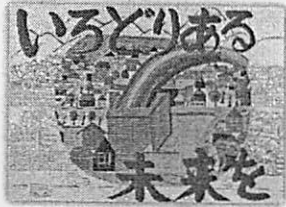 いろどりある
未来を